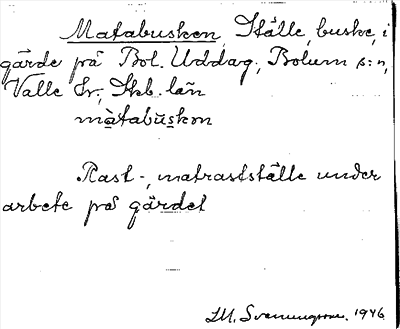 Matabusken, Ställe, buske, i
gärde på Bol. Uddag., Bolum s:n,
Valle hr., Skb. län
màtabùskon
Rast-, matrastställe under
arbete på gärdet
I.M. Svenungsson. 1946